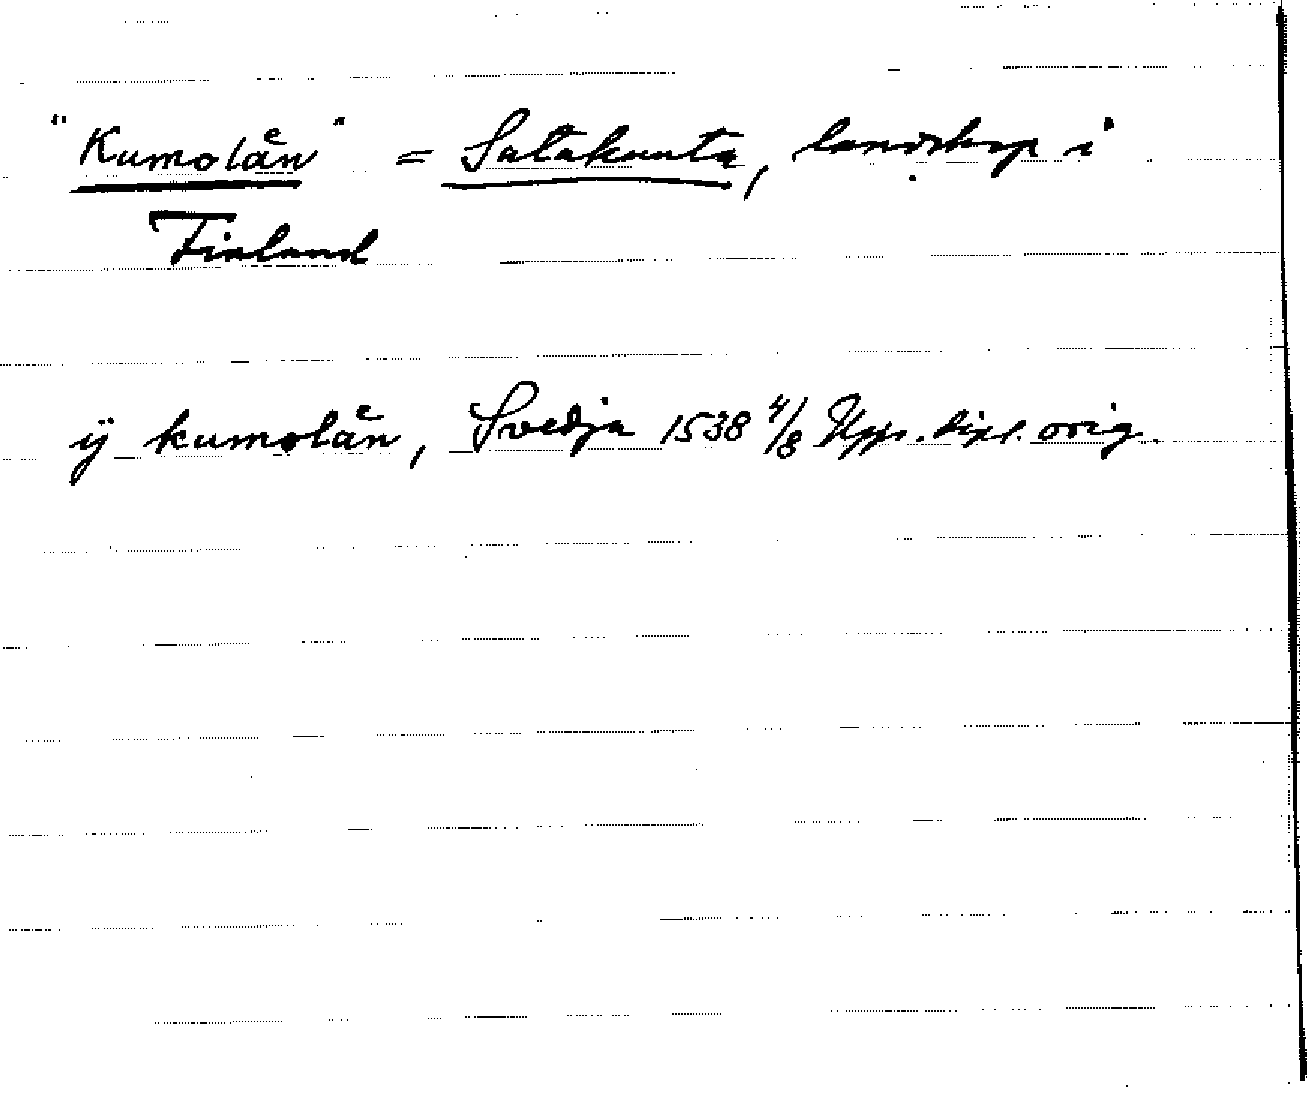 "Kumolän" = Satakunta, landskap i
Finland
ÿ kumolän, Svedja 1538 4/8 Upps. dipl. orig.